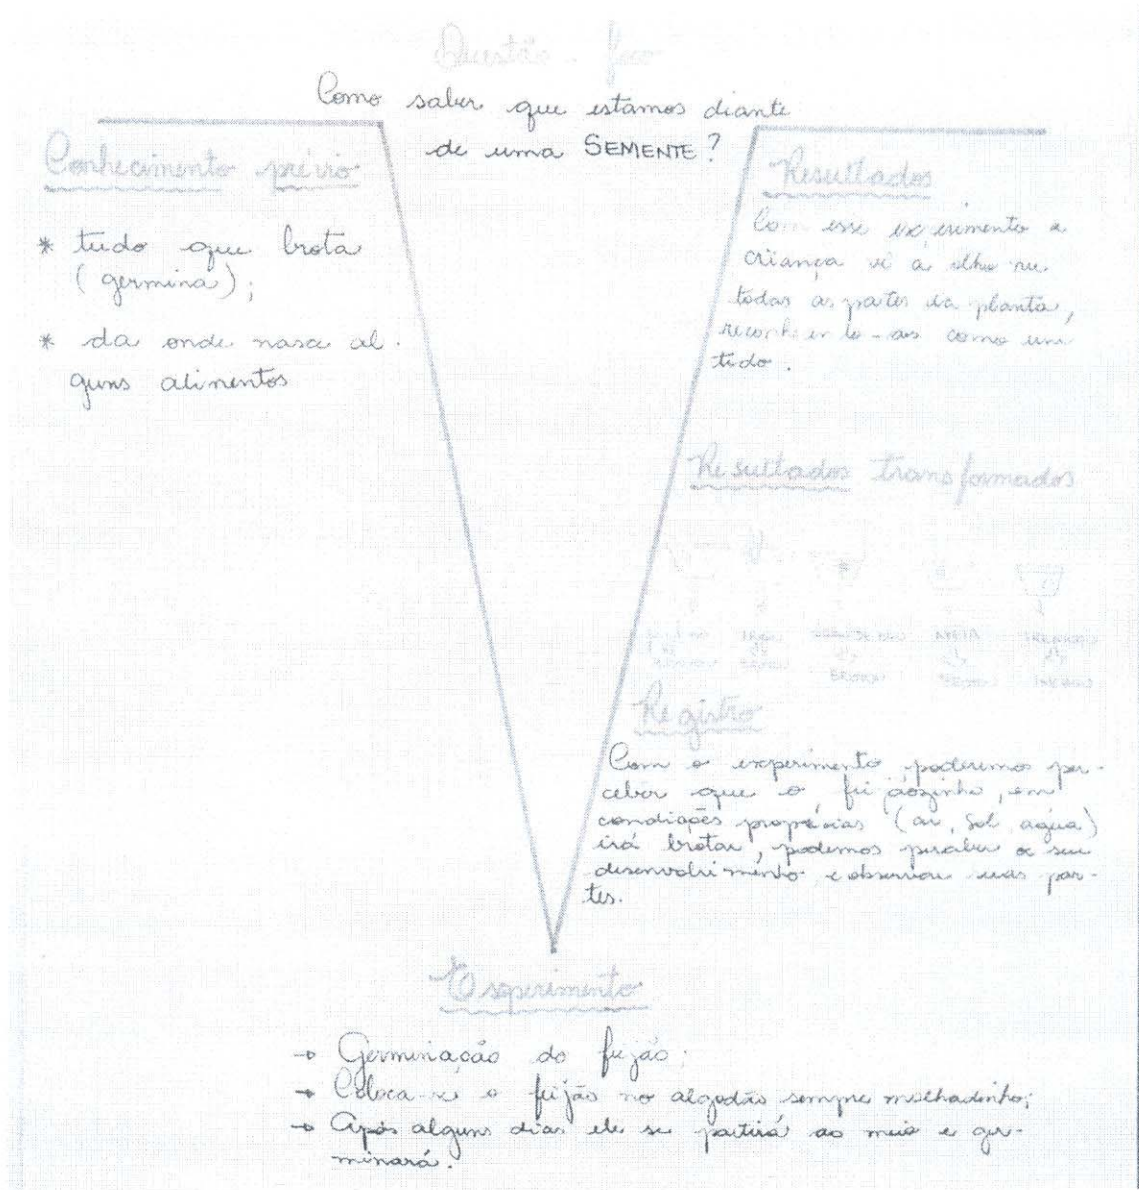 Questão - foco
Como saber que estamos diante
de uma SEMENTE?
Conhecimento prévio
* tudo que brota
(germina);
* da onde nasce al-
guns alimentos
Resultados
Com esse experimento a
criança vê a olho nu
todas as partes da planta,
reconhecendo-as como um
todo.
Resultados transformados
AREIA
BROTOU
Registro
Com o experimento poderemos per-
ceber que o feijãozinho, em
condições proprícias (ar, sol, água)
irá brotar, podemos perceber o seu
desenvolvimento e observar suas par-
tes.
Experimento
→ Germinação do feijão;
→ Coloca-se o feijão no algodão sempre molhadinho;
→ Após alguns dias ele se partirá ao meio e ger-
minará.